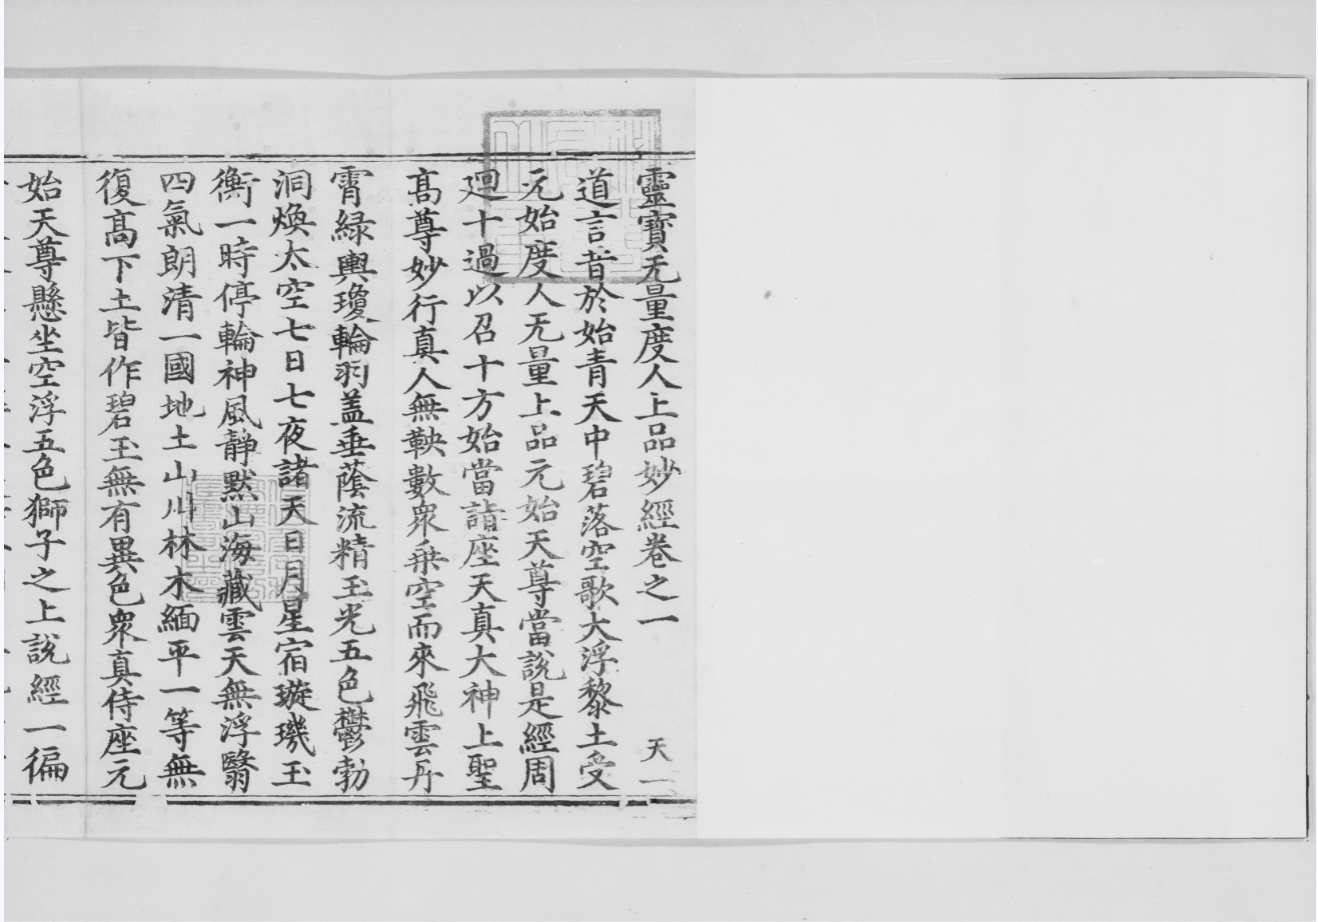 靈寶无量度人上品妙經卷之一
天一
道言昔於始青天中碧落空歌大浮黎土受
元始度人无量上品元始天尊當說是經周
迴十過以召十方始當詣座天真大神上聖
髙尊妙行真人無鞅數衆乗空而來飛雲丹
霄緑輿瓊輪羽蓋垂蔭流精玉光五色鬱勃
洞煥太空七日七夜諸天日月星宿璇璣玉
衡一時停輪神風靜默山海藏雲天無浮翳
四氣朗清一國地土山川林木緬平一等無
復髙下土皆作碧玉無有異色衆真侍座元
始天尊懸坐空浮五色獅子之上說經一徧